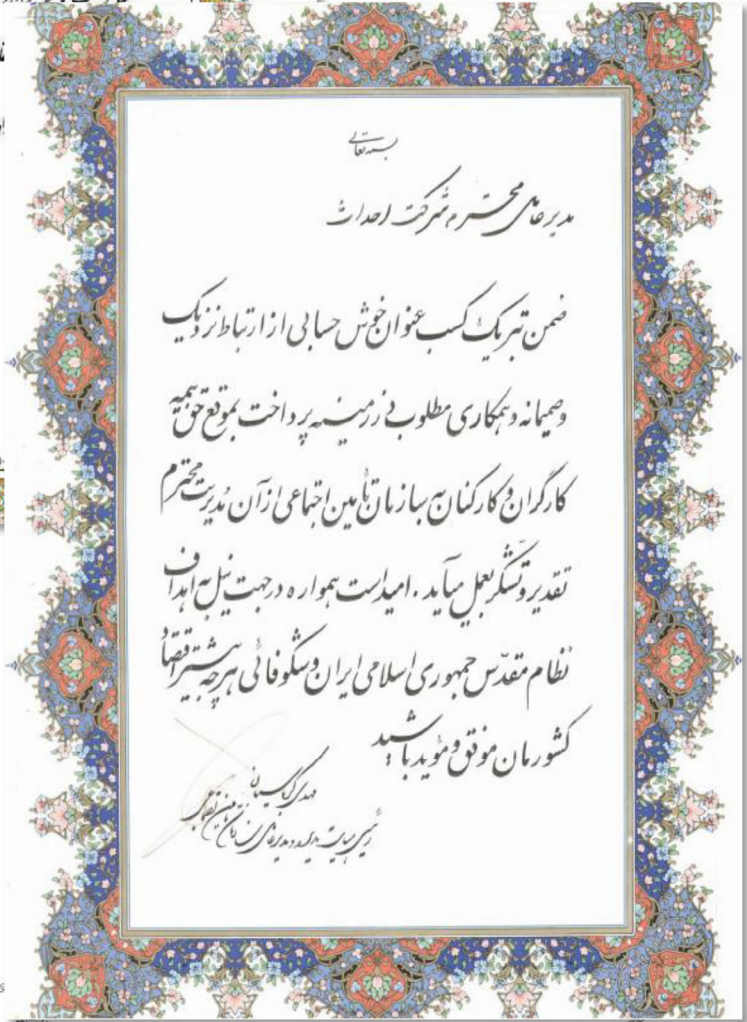 بسمه تعالی
مدیر عامل محترم شرکت احداث
ضمن تبریک کسب عنوان خوش حسابی از ارتباط نزدیک
و صمیمانه و همکاری مطلوب در زمینه پرداخت بموقع حق بیمه
کارگران و کارکنان به سازمان تأمین اجتماعی از آن مدیریت محترم
تقدیر و تشکر بعمل میآید . امید است همواره در جهت نیل به اهداف
نظام مقدّس جمهوری اسلامی ایران و شکوفائی هر چه بیشتر اقتصاد
کشورمان موفق و مؤید باشید
مهدی کرباسیان
رئیس هیات مدیره و مدیرعامل سازمان تأمین اجتماعی